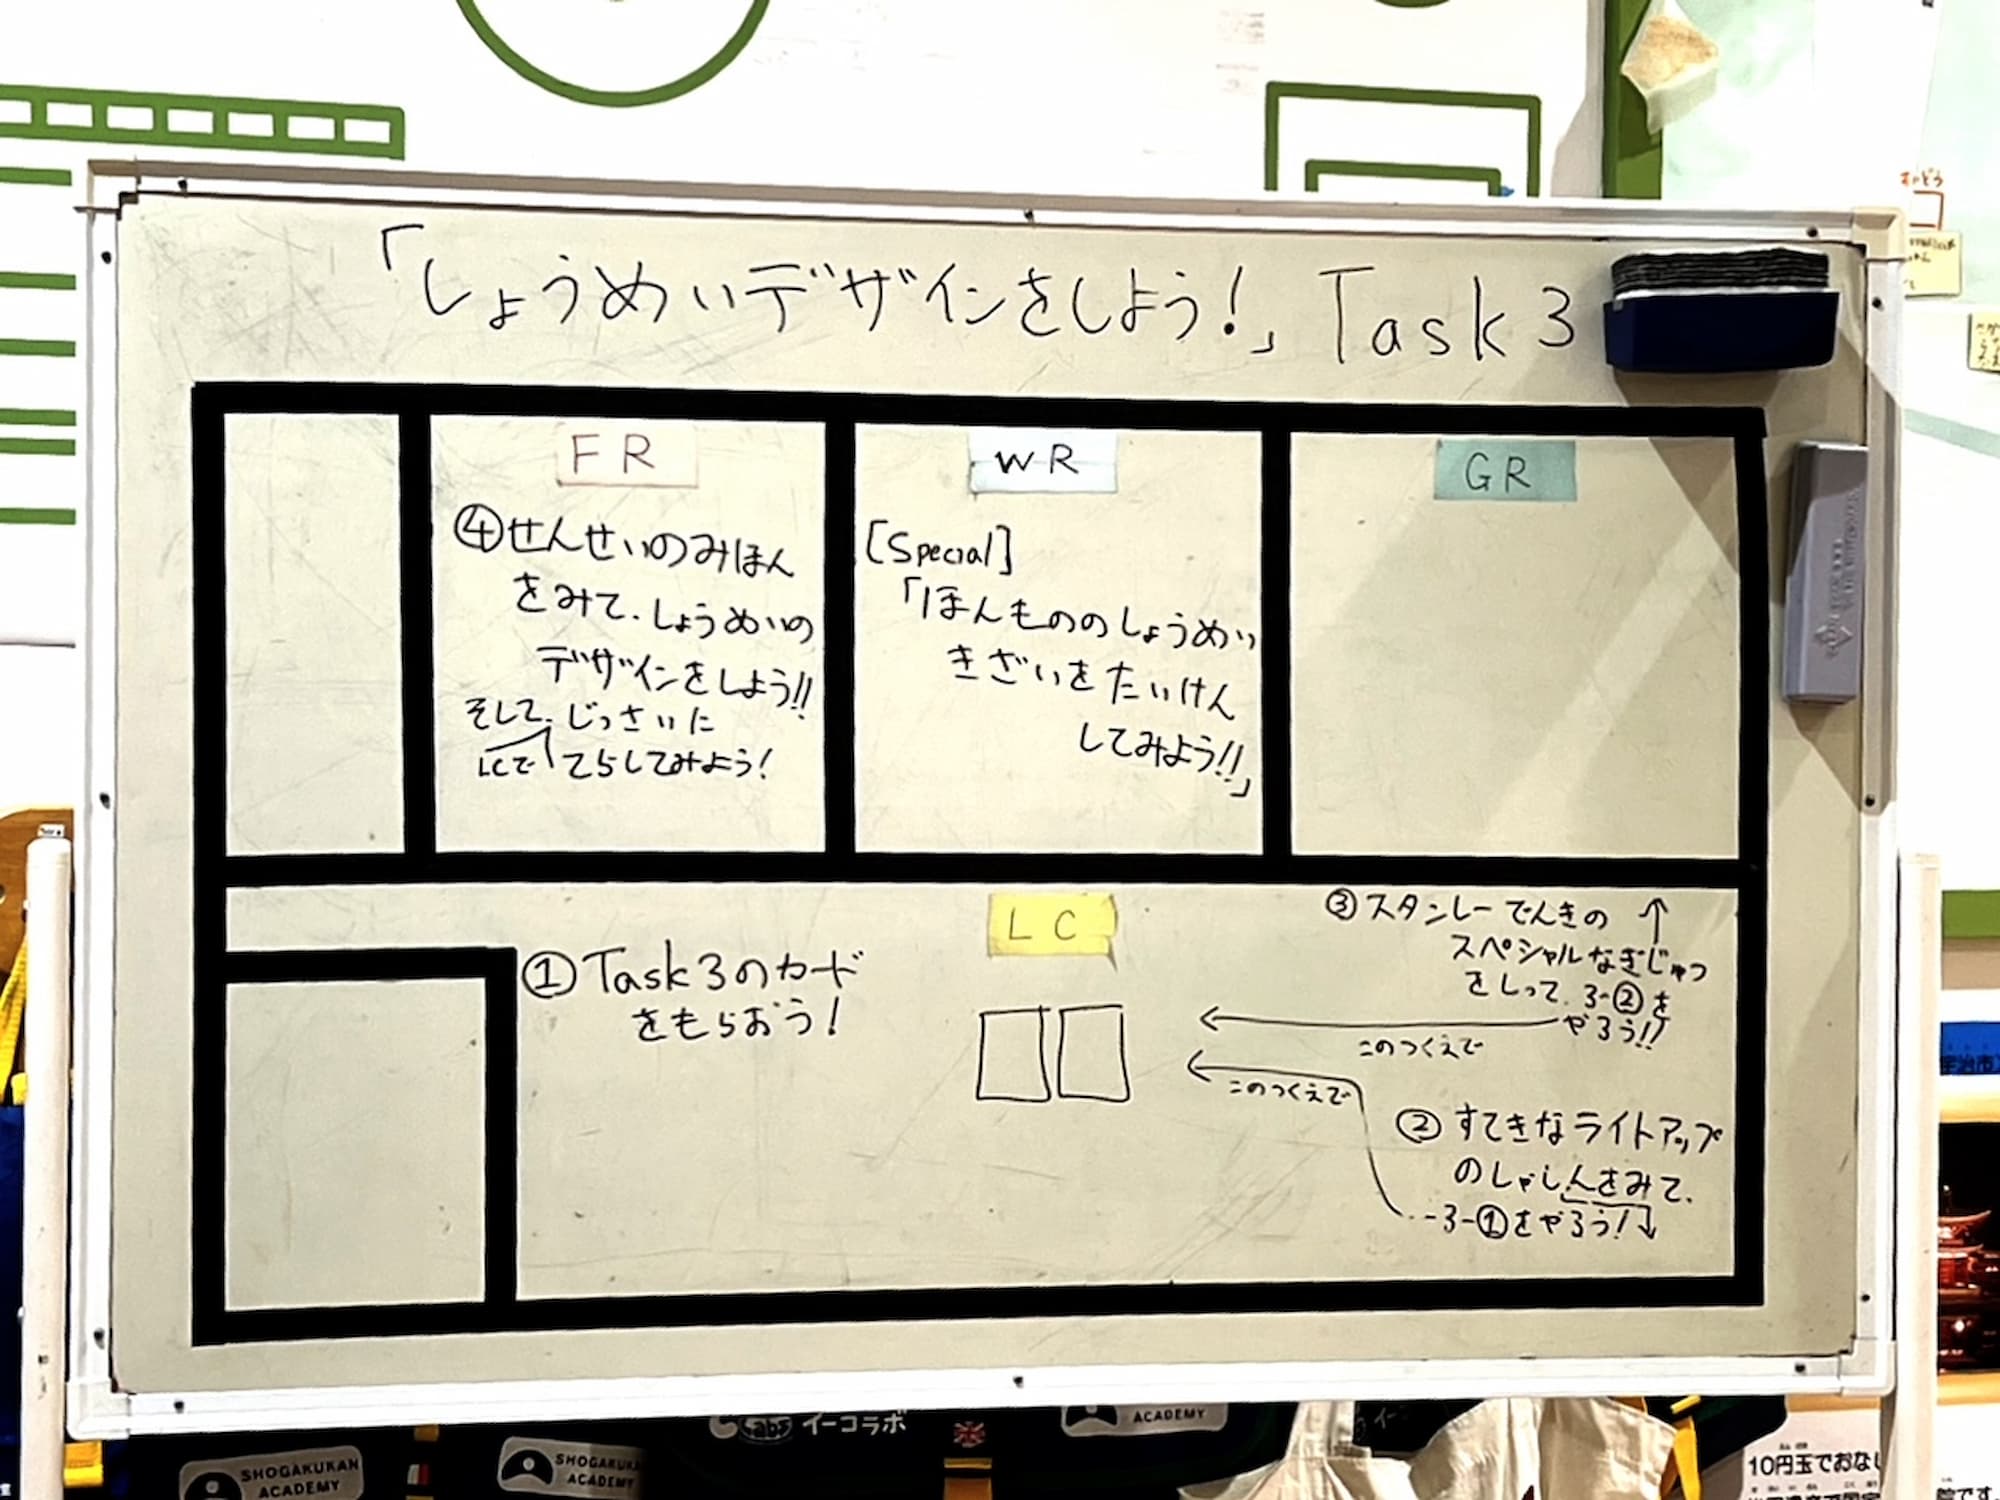 「しょうめいデザインをしよう!」 Task 3
FR
④せんせいのみほん
をみて、しょうめいの
デザインをしよう!!
そして、じっさいに
LCで てらしてみよう!
WR
[Special]
「ほんもののしょうめい
きざいをたいけん
してみよう!!」
GR
LC
①Task3のカード
をもらおう!
③スタンレーでんきの
スペシャルなぎじゅつ
をしって、3-②を
やろう!!
このつくえで
このつくえで
②すてきなライトアップ
のしゃしんをみて、
3-①をやろう!
SHOGAKUKAN
ACADEMY
SHOGAKUKAN
ACADEMY
Labs イーコラボ
ACADEMY
10円玉でおなじ
院です
宇治市